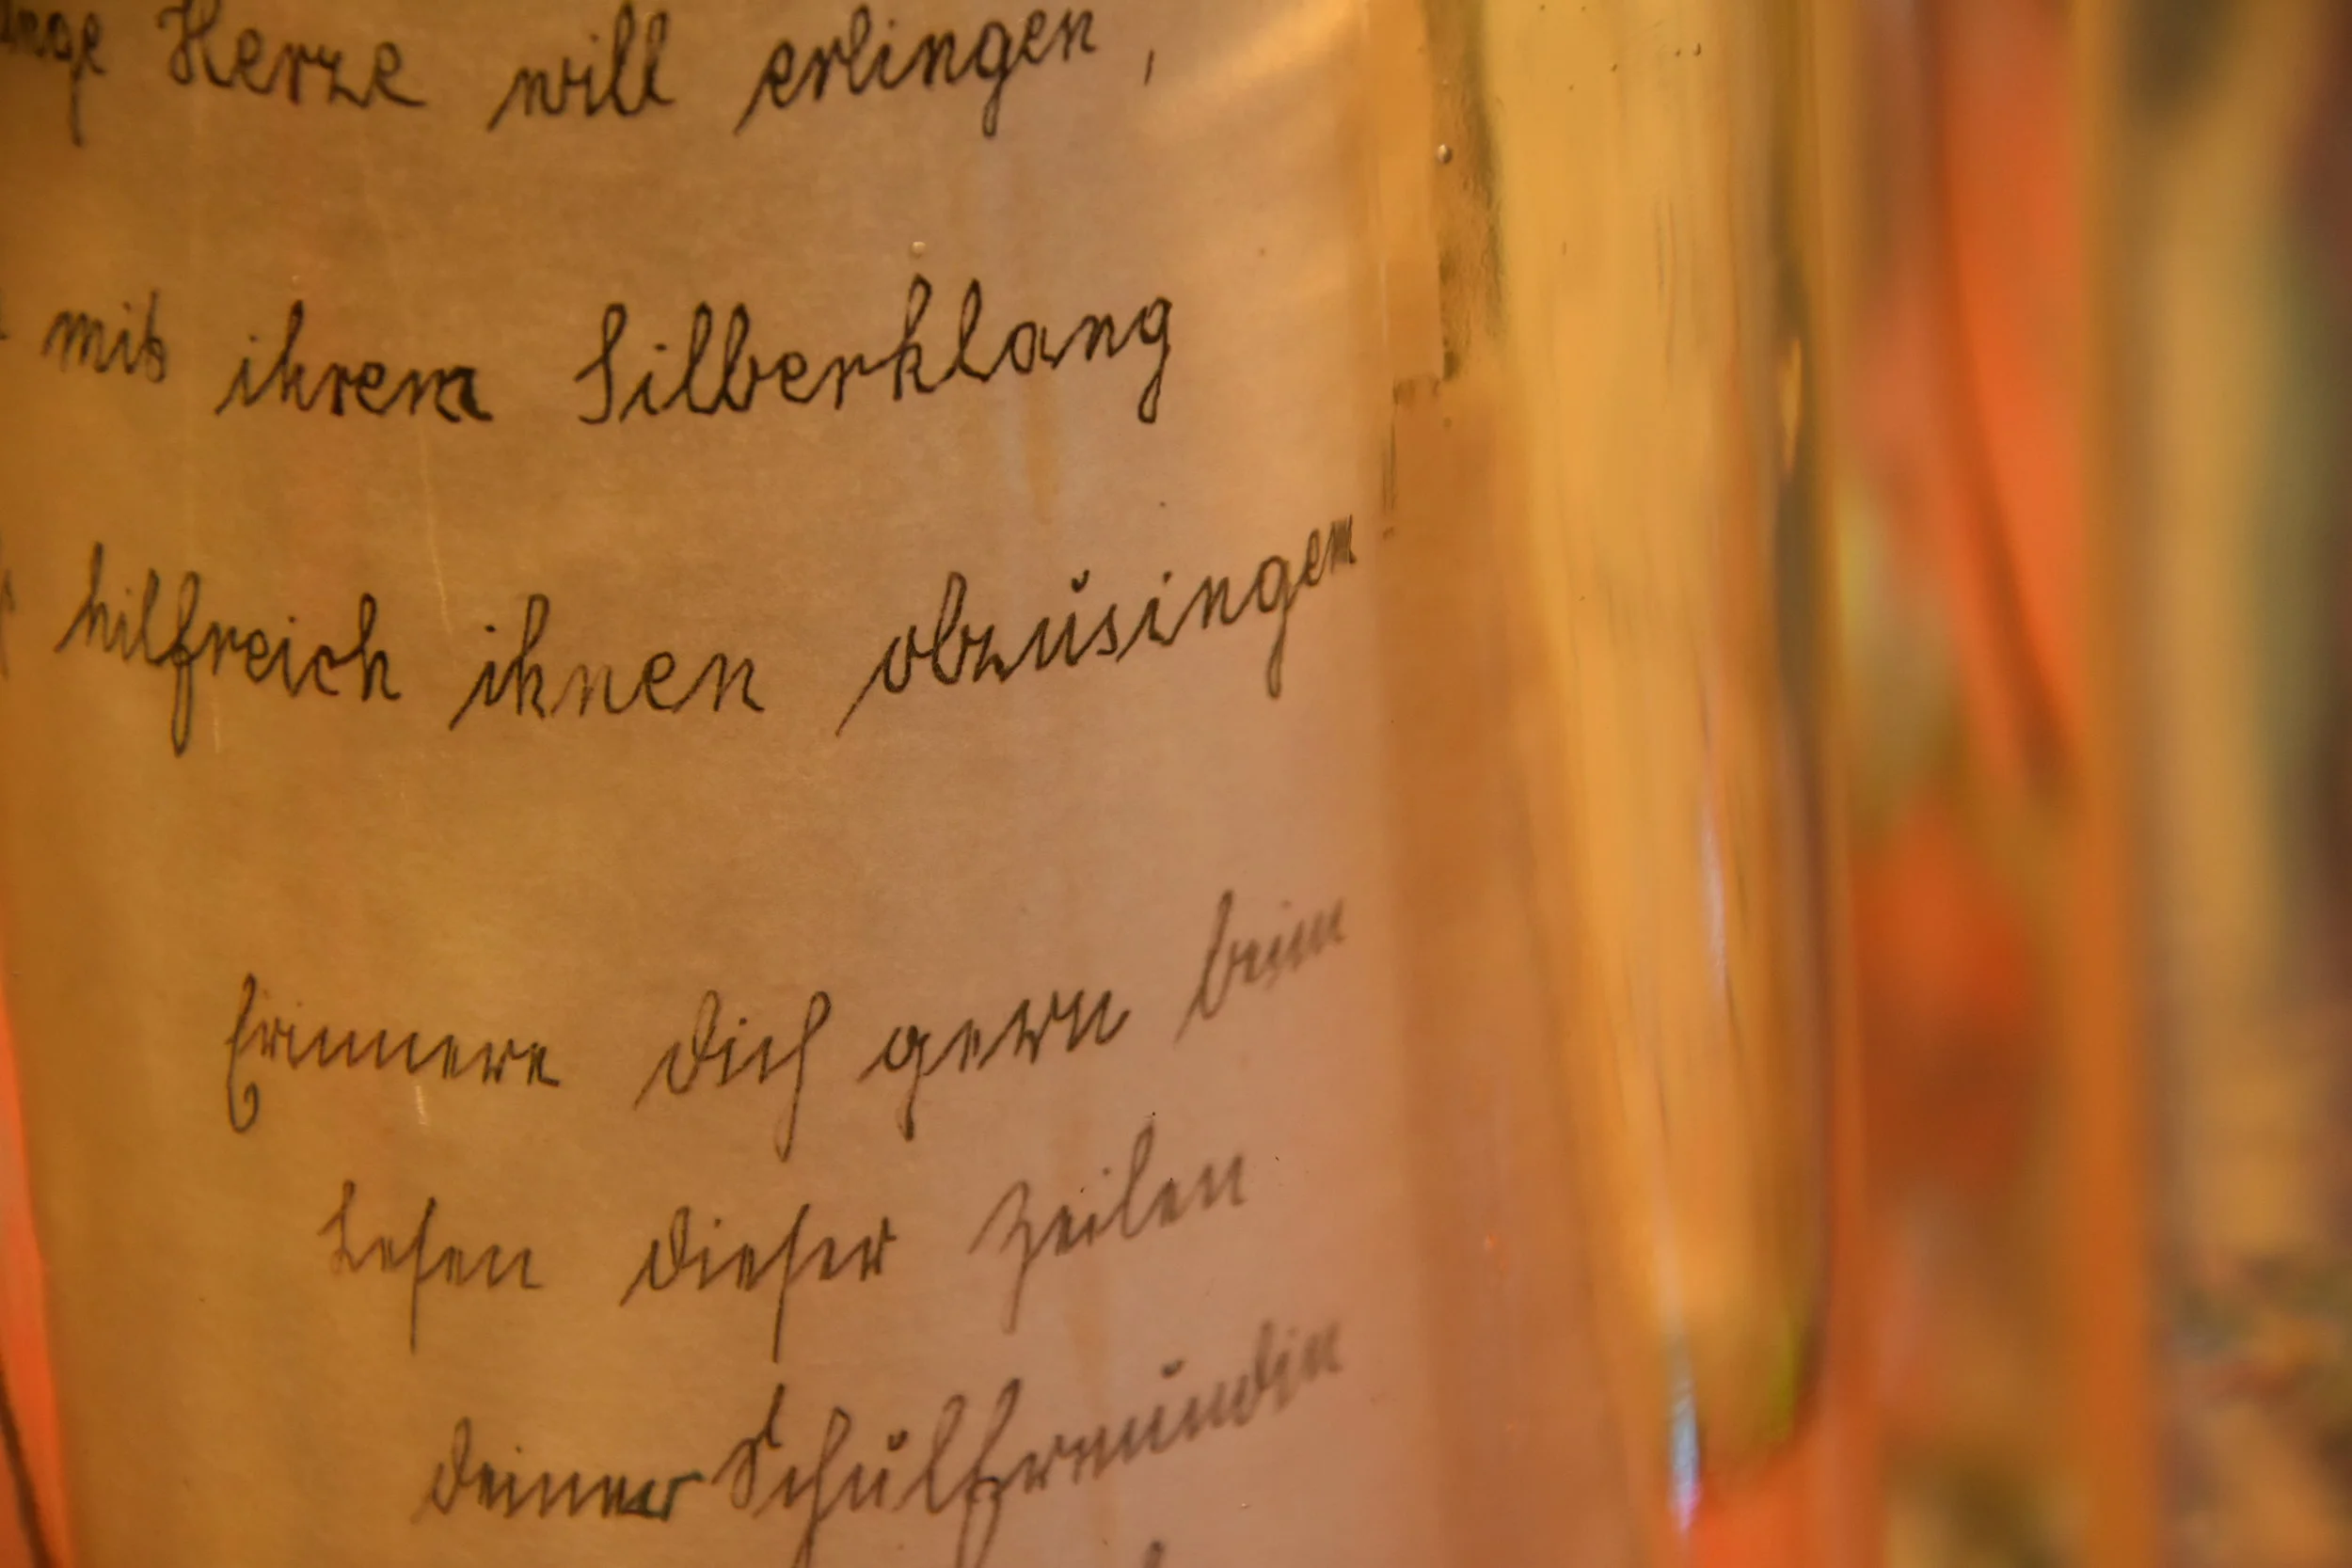 Herze will erlingen,
mit ihrem Silberklang
hilfreich ihnen abzusingen
Erinnere dich gern beim
Lesen dieser Zeilen
deiner Schulfreundin